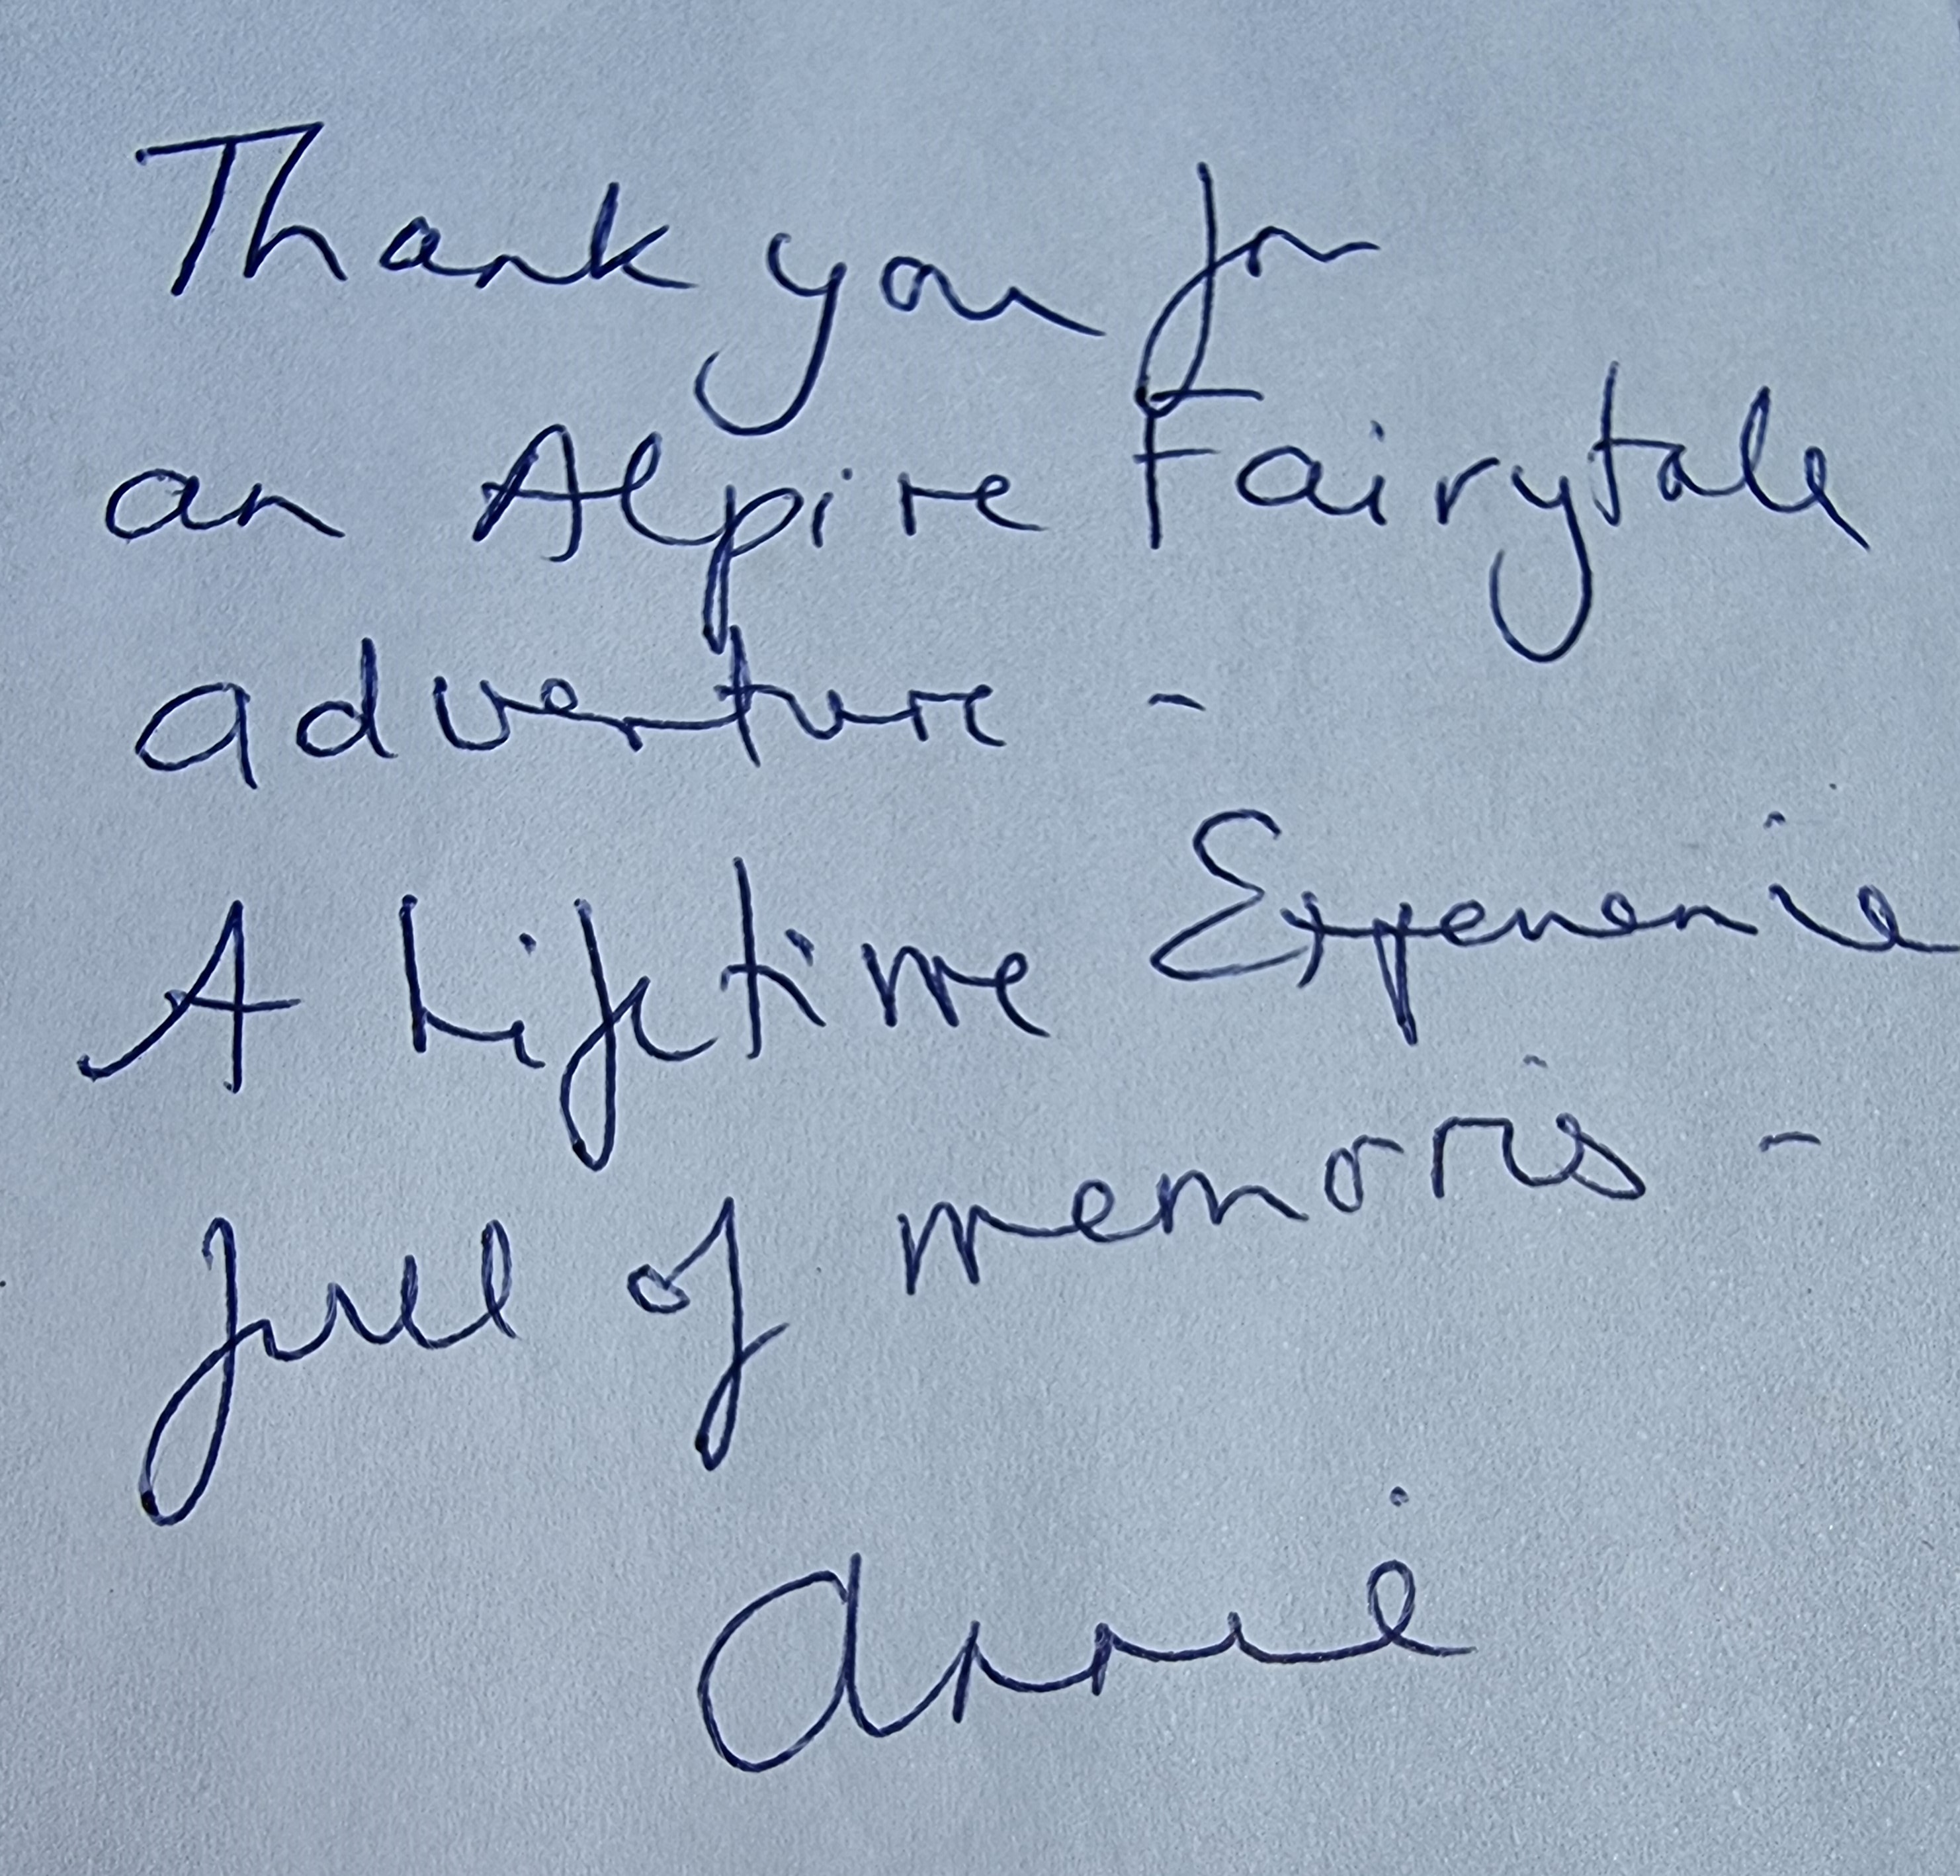 Thank you for
an Alpine Fairytale
adventure -
A Lifetime Experience
full of memories -
Annie